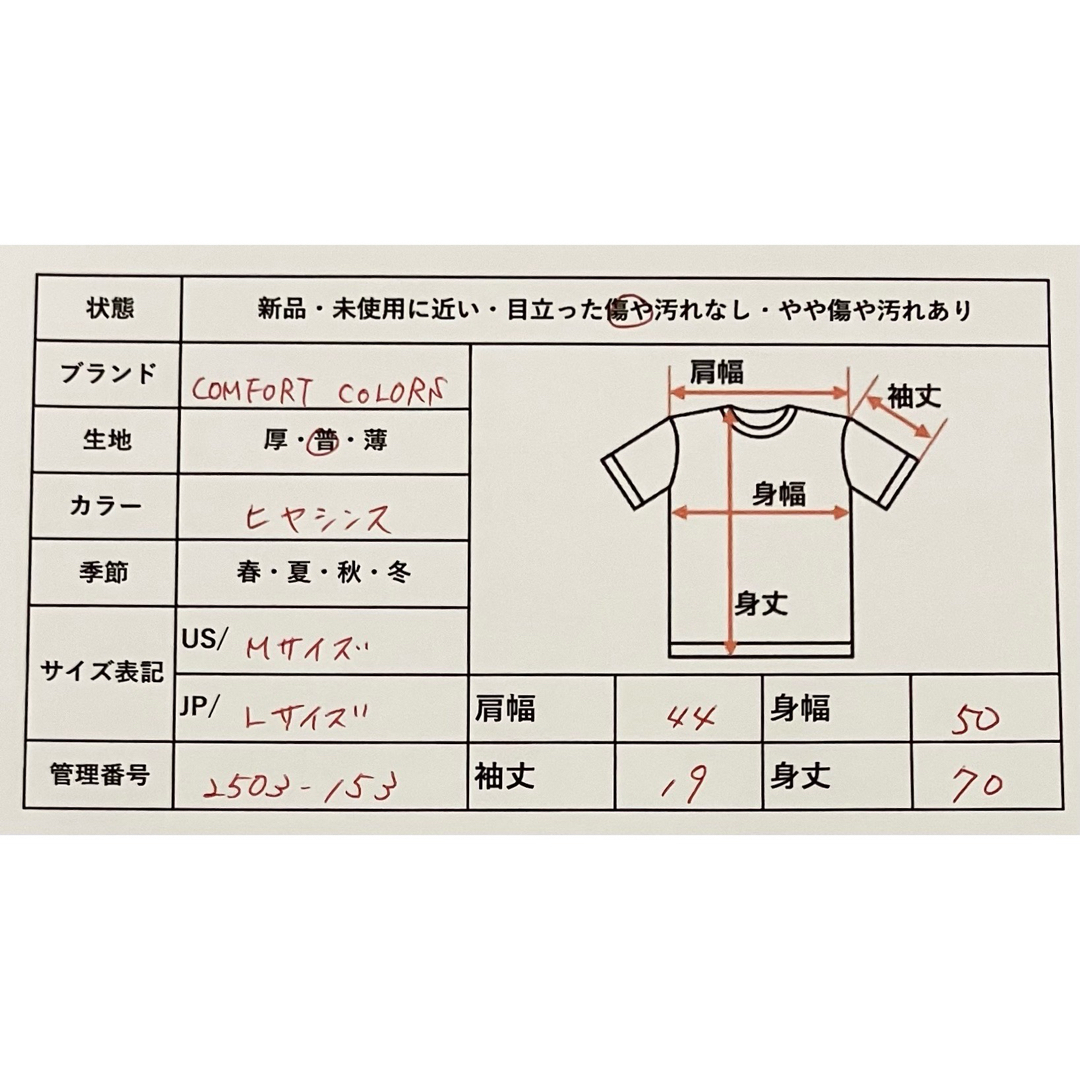 状態 新品・未使用に近い・目立った傷や汚れなし・やや傷や汚れあり
ブランド COMFORT COLORS
生地 厚・普・薄
カラー ヒヤシンス
季節 春・夏・秋・冬
サイズ表記 US/ Mサイズ
JP/ Lサイズ
管理番号 2503-153
肩幅
袖丈
身幅
身丈
肩幅 44 身幅 50
袖丈 19 身丈 70